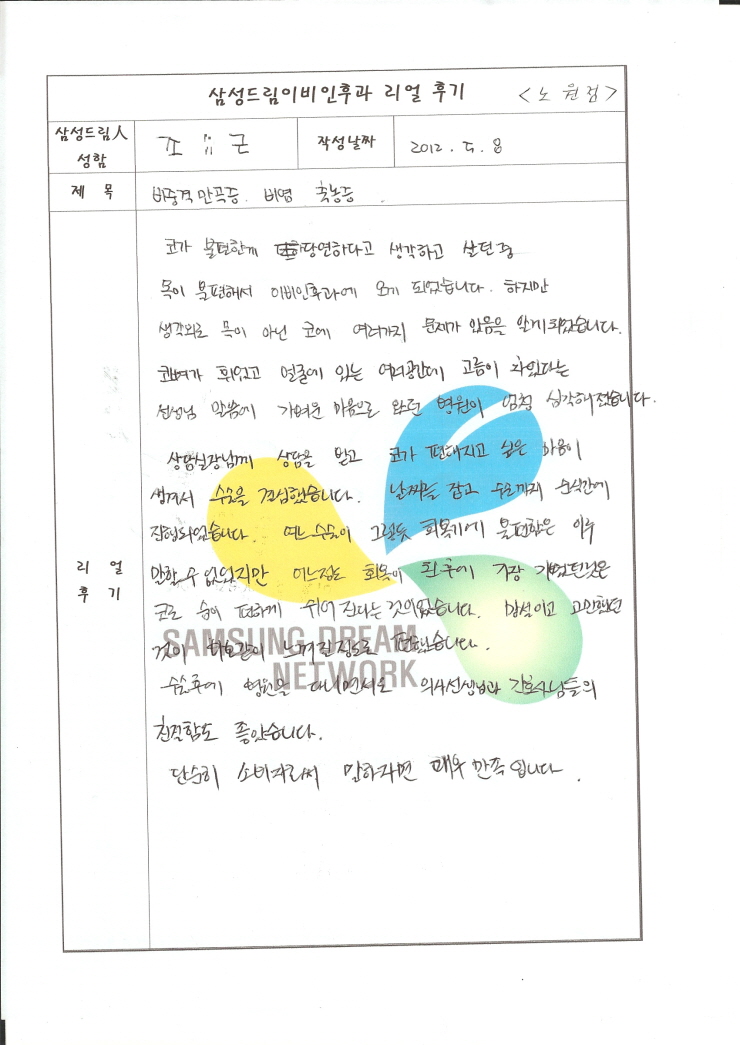 삼성드림이비인후과 리얼 후기 <노원점>
삼성드림人 성함 조 근 작성날짜 2012. 5. 8
제 목 비중격만곡증. 비염 축농증.
리 얼 후 기
코가 불편한게 당연하다고 생각하고 살던중
목이 불편해서 이비인후과에 오게 되었습니다. 하지만
생각외로 목이 아닌 코에 여러가지 문제가 있음을 알게되었습니다.
코뼈가 휘었고 얼굴에 있는 여러공간에 고름이 차있다는
선생님 말씀에 가벼운 마음으로 왔던 병원이 엄청 심각해졌습니다.
상담실장님께 상담을 받고 코가 편해지고 싶은 마음이
생겨서 수술을 결심했습니다. 날짜를 잡고 수술까지 순식간에
진행되었습니다. 여느수술이 그렇듯 회복기에 불편함은 이루
말할수 없었지만 어느정도 회복이 된후에 가장 기뻤던것은
코로 숨이 편하게 쉬어 진다는 것이었습니다. 망설이고 고민했던
것이 바보같이 느껴질정도로 편했습니다.
수술후에 병원을 다니면서도 의사선생님과 간호사님들의
친절함도 좋았습니다.
단순히 소비자로써 말하자면 매우 만족입니다.
SAMSUNG DREAM
NETWORK